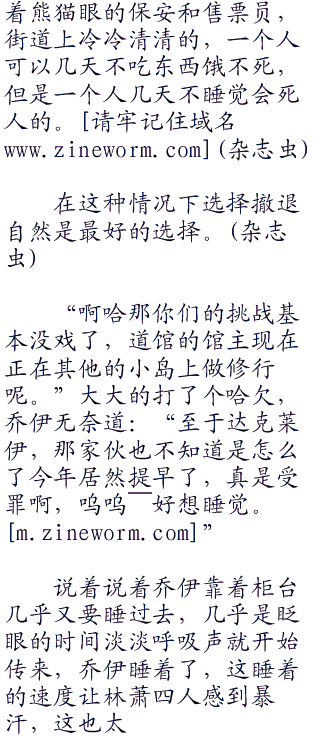 着熊猫眼的保安和售票员，
街道上冷冷清清的，一个人
可以几天不吃东西饿不死，
但是一个人几天不睡觉会死
人的。[请牢记住域名
www.zineworm.com](杂志虫)
在这种情况下选择撤退
自然是最好的选择。(杂志
虫)
“啊哈那你们的挑战基
本没戏了，道馆的馆主现在
正在其他的小岛上做修行
呢。”大大的打了个哈欠，
乔伊无奈道：“至于达克莱
伊，那家伙也不知道是怎么
了今年居然提早了，真是受
罪啊，呜呜￣好想睡觉。
[m.zineworm.com]”
说着说着乔伊靠着柜台
几乎又要睡过去，几乎是眨
眼的时间淡淡呼吸声就开始
传来，乔伊睡着了，这睡着
的速度让林萧四人感到暴
汗，这也太